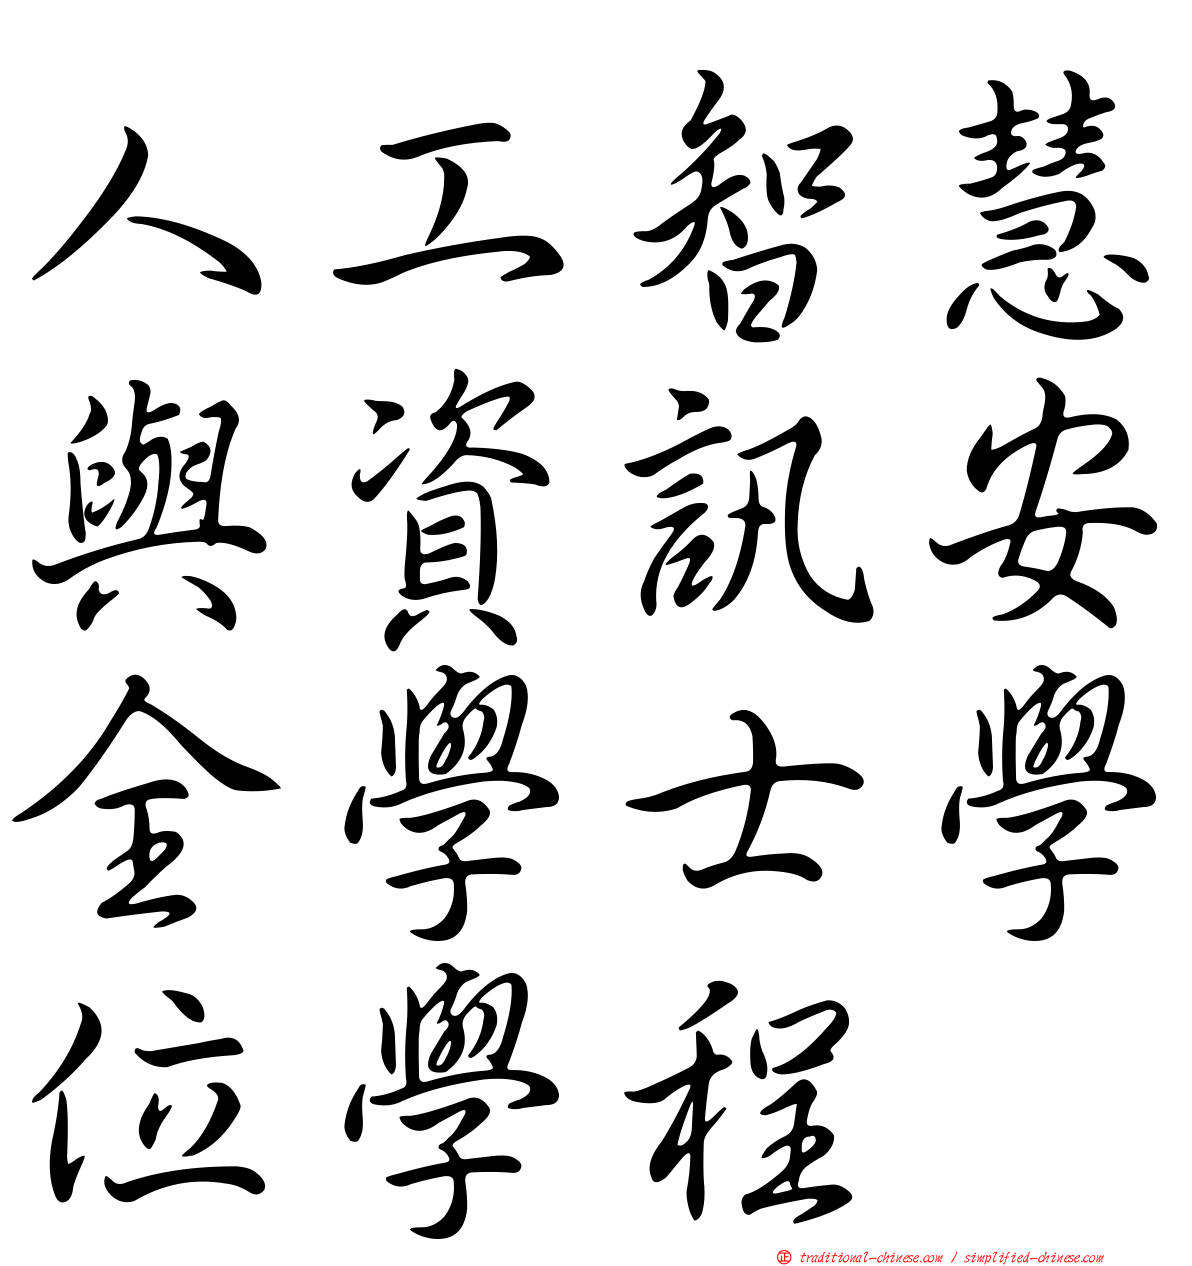 人工智慧
與資訊安
全學士學
位學學程
正 traditional-chinese.com / simplified-chinese.com